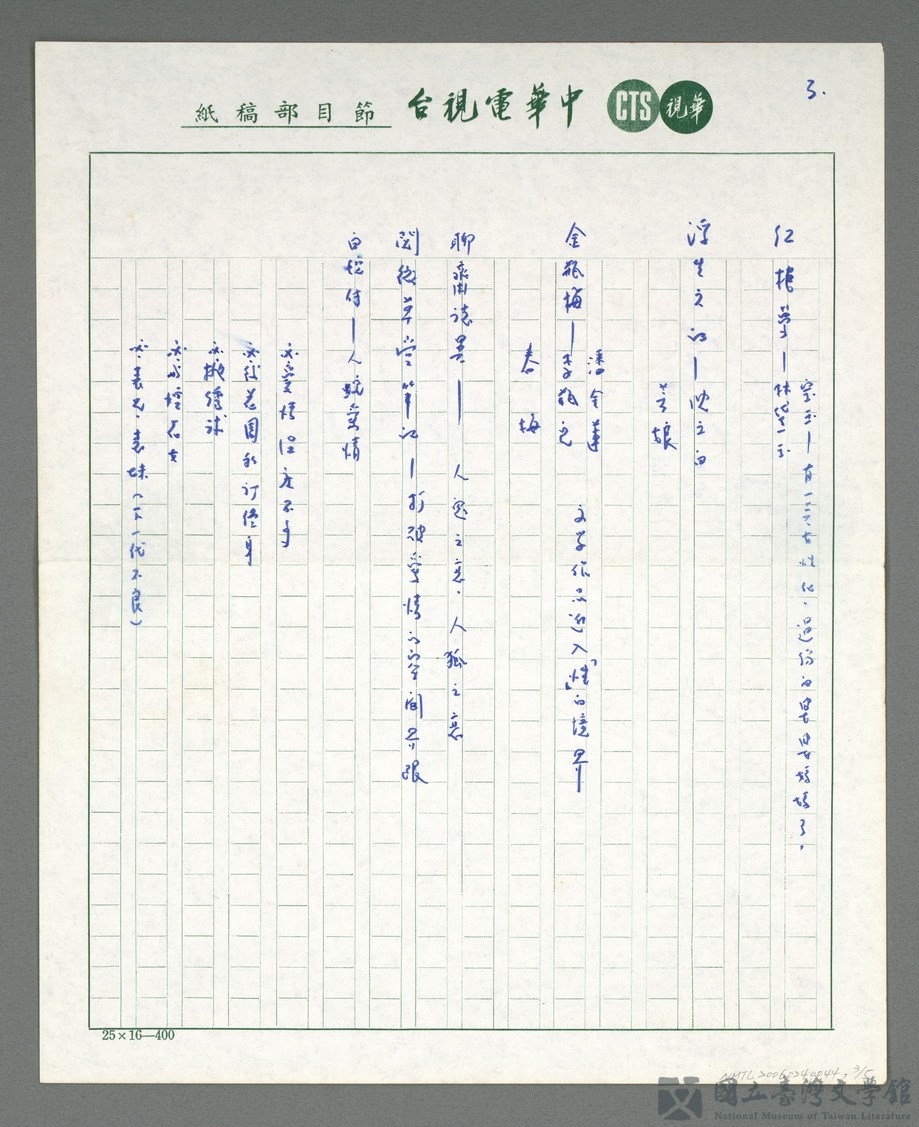 3.
CTS 華視 中華電視台 節目部稿紙
寶玉—有一二女性化,過份的婆婆媽媽了。
紅樓夢—林黛玉
浮生六記—沈三白
芸娘
潘金蓮
金瓶梅—李瓶兒 文學作品進入「性」的境界
春梅
聊齋誌異— 人鬼之戀.人狐之戀
閱微草堂筆記—打破愛情的空間界限
白蛇傳—人蛇愛情
必.後花園私訂終身
必.拋繡球
必.表兄.表妹(下一代不良)
25×16—400
NMTL20060240044, 3/5
國立臺灣文學館
National Museum of Taiwan Literature